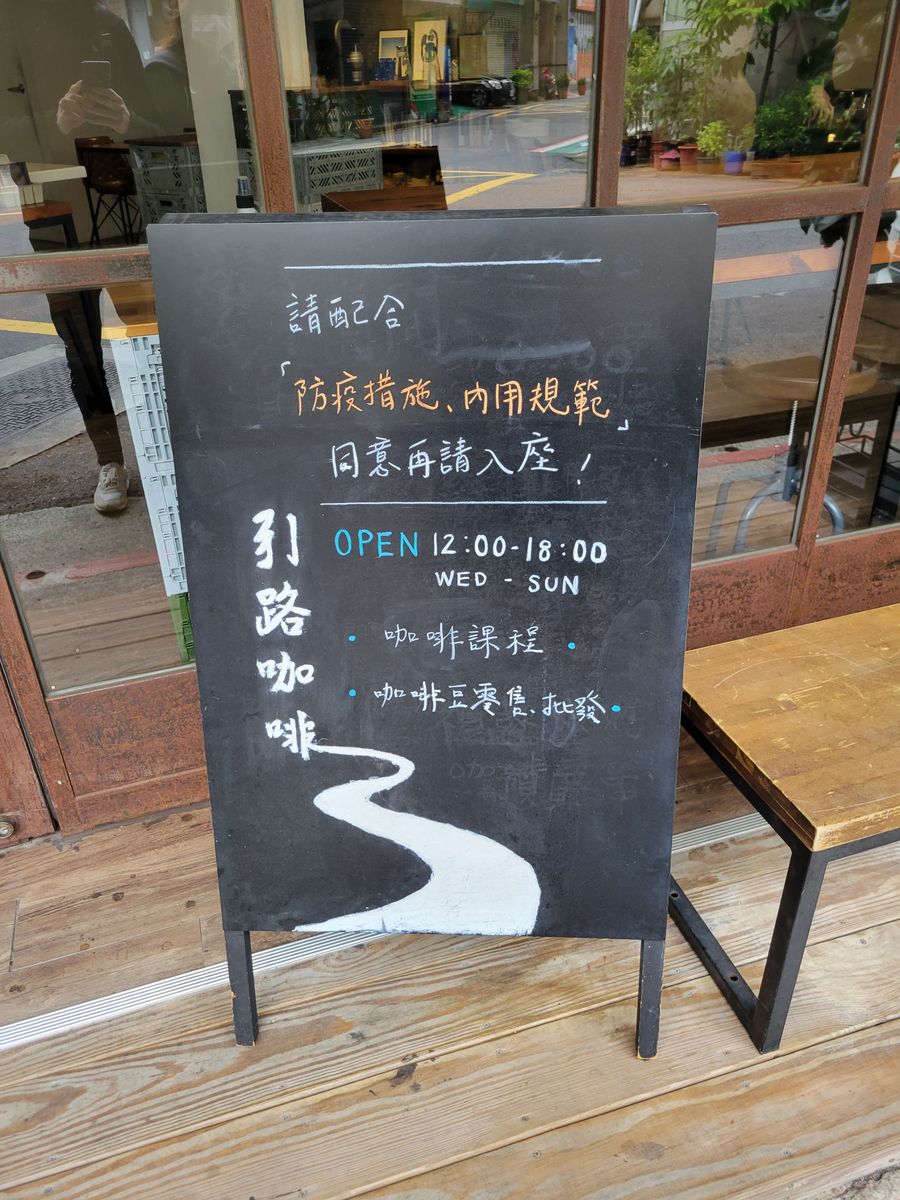 請配合
「防疫措施、內用規範」
同意再請入座！
引路咖啡
OPEN 12:00-18:00
WED - SUN
• 咖啡課程 •
• 咖啡豆零售、批發 •